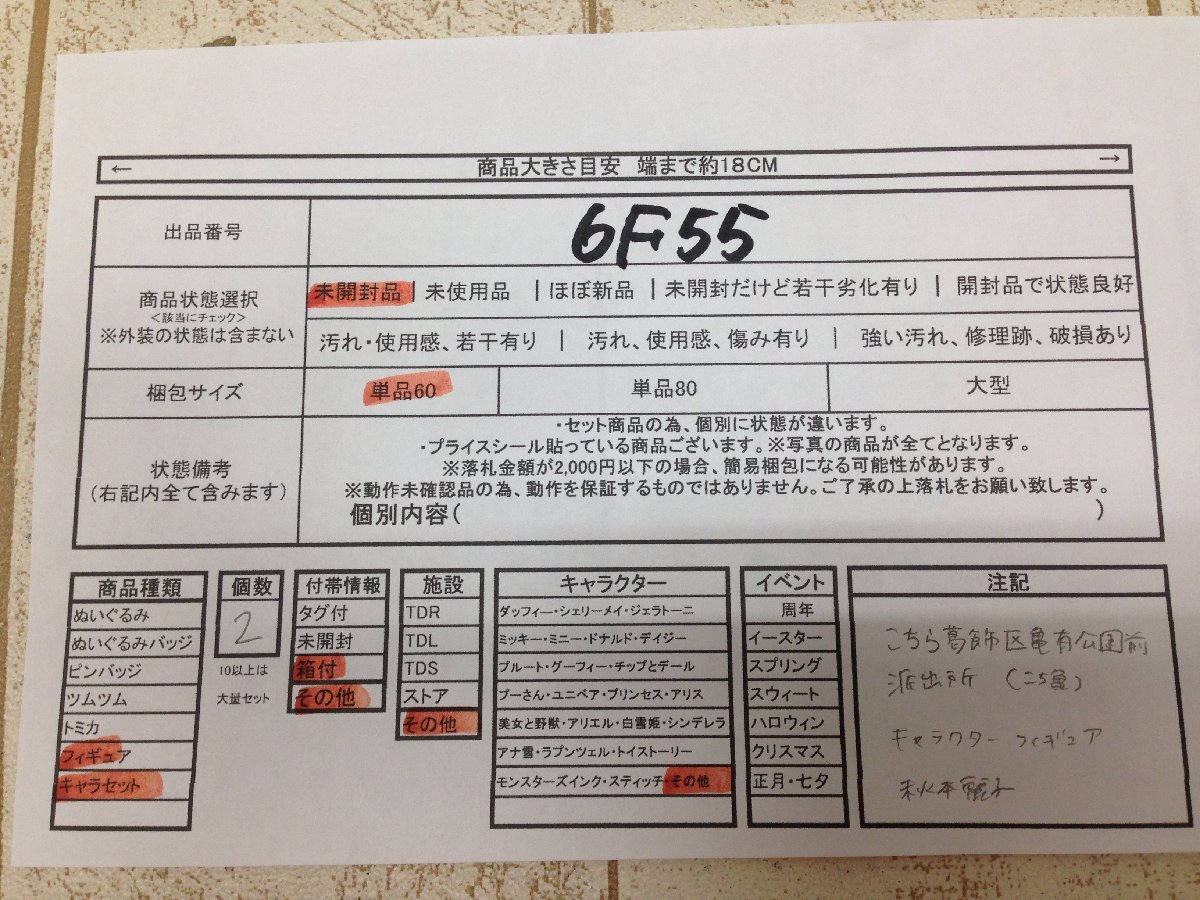 ← 商品大きさ目安 端まで約18CM →
出品番号 6F55
商品状態選択
<該当にチェック>
※外装の状態は含まない
未開封品 | 未使用品 | ほぼ新品 | 未開封だけど若干劣化有り | 開封品で状態良好
汚れ・使用感、若干有り | 汚れ、使用感、傷み有り | 強い汚れ、修理跡、破損あり
梱包サイズ 単品60 単品80 大型
状態備考
(右記内全て含みます)
・セット商品の為、個別に状態が違います。
・プライスシール貼っている商品ございます。※写真の商品が全てとなります。
※落札金額が2,000円以下の場合、簡易梱包になる可能性があります。
※動作未確認品の為、動作を保証するものではありません。ご了承の上落札をお願い致します。
個別内容( )
商品種類
ぬいぐるみ
ぬいぐるみバッジ
ピンバッジ
ツムツム
トミカ
フィギュア
キャラセット
個数
2
10以上は
大量セット
付帯情報
タグ付
未開封
箱付
その他
施設
TDR
TDL
TDS
ストア
その他
キャラクター
ダッフィー・シェリーメイ・ジェラトーニ
ミッキー・ミニー・ドナルド・デイジー
プルート・グーフィー・チップとデール
プーさん・ユニベア・プリンセス・アリス
美女と野獣・アリエル・白雪姫・シンデレラ
アナ雪・ラプンツェル・トイストーリー
モンスターズインク・スティッチ・その他
イベント
周年
イースター
スプリング
スウィート
ハロウィン
クリスマス
正月・七夕
注記
こちら葛飾区亀有公園前
派出所 (こち亀)
キャラクター フィギュア
秋本麗子